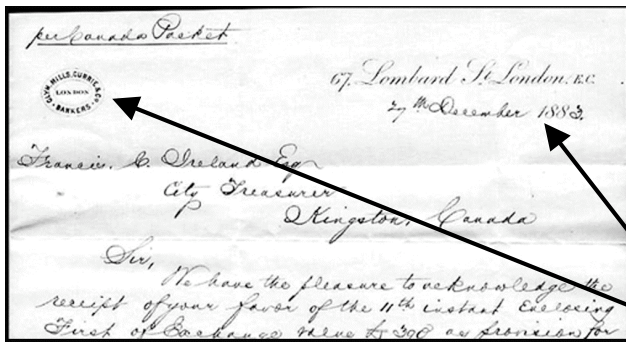 per Canada Packet
GLYN, MILLS, CURRIE & Co
LONDON
BANKERS
67, Lombard St London, E.C.
27th December 1883.
Francis. C. Ireland Esq
City Treasurer
Kingston, Canada
Sir,
We have the pleasure to acknowledge the
receipt of your favor of the 11th instant Enclosing
First of Exchange value £ 390 as provision for